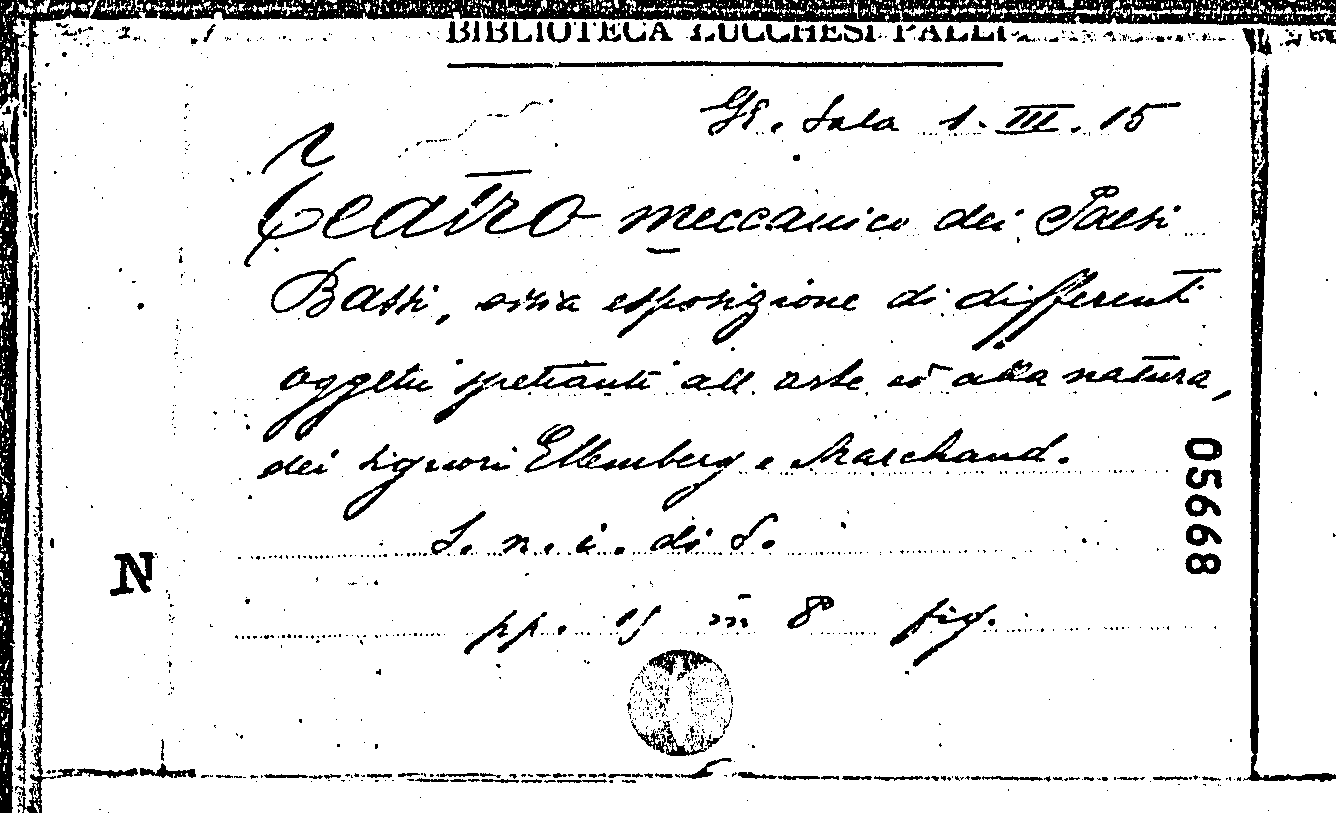 BIBLIOTECA LUCCHESI PALLI
Gr. Sala 1. III. 15
Teatro meccanico dei Paesi
Bassi, ossia esposizione di differenti
oggetti spettanti all arte ed alla natura,
dei signori Ellemberg e Marchand.
S. n. i. di S.
pp. 15 in 8° fig.
N
05668